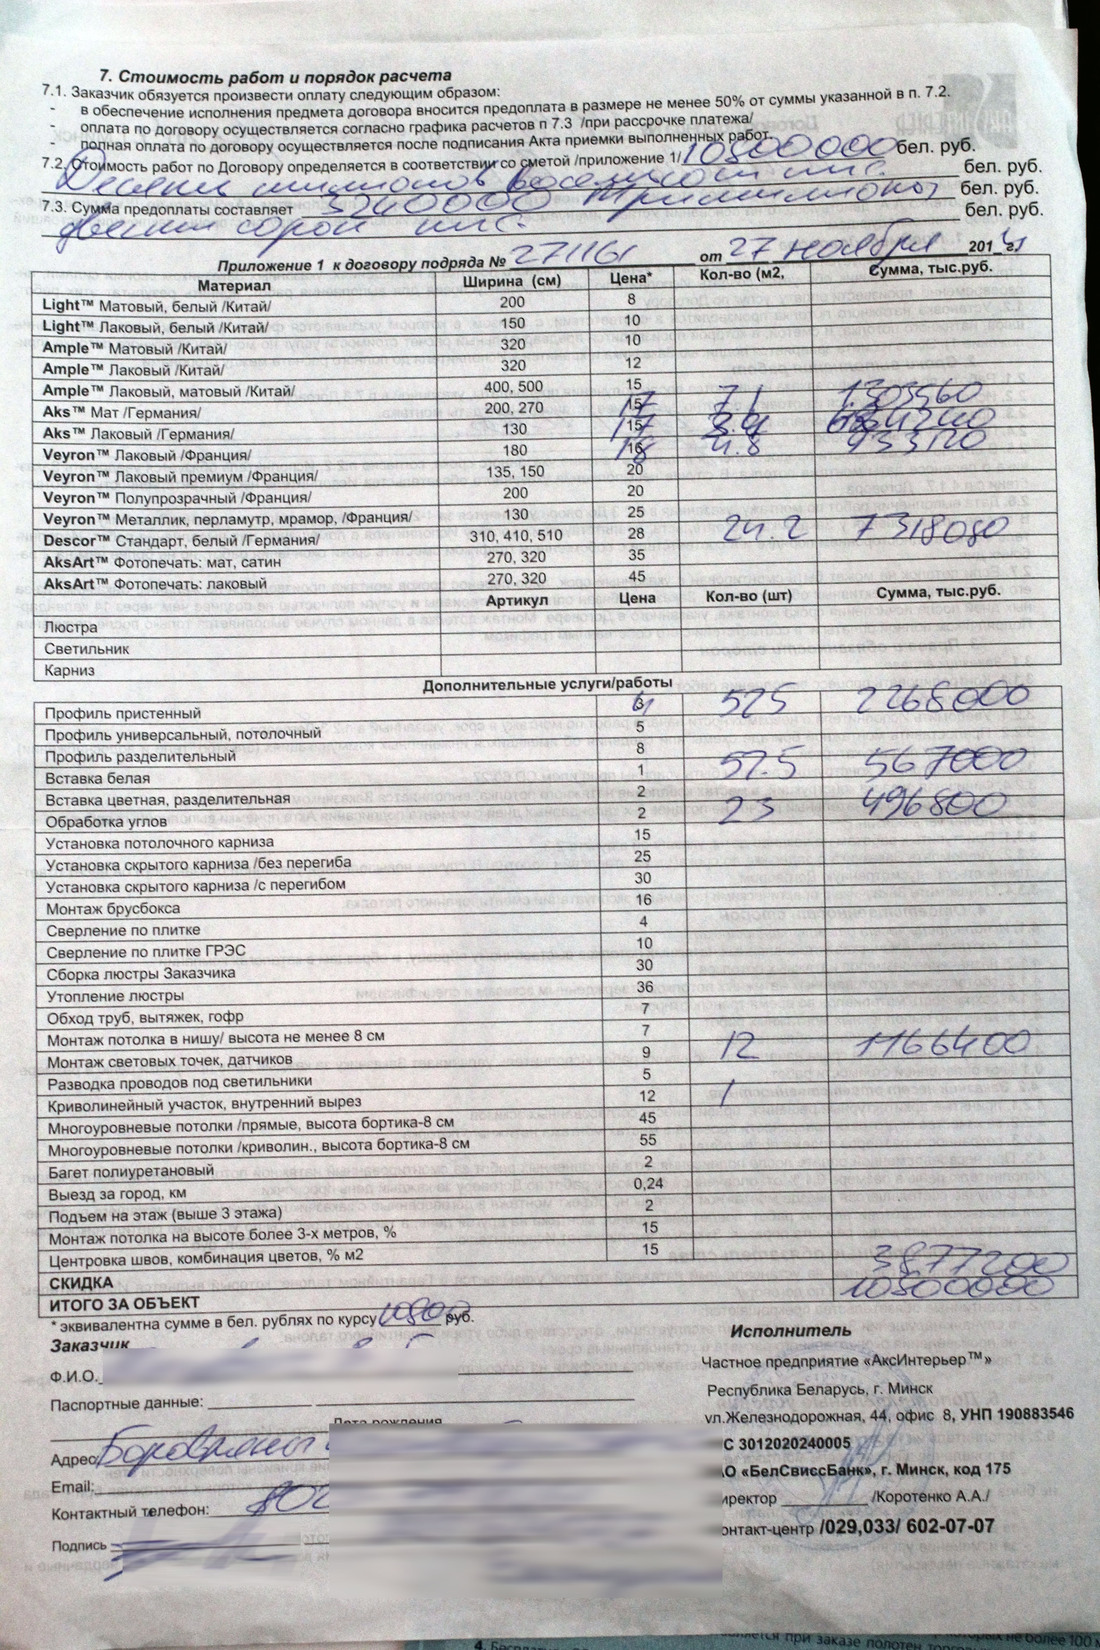 7. Стоимость работ и порядок расчета
7.1. Заказчик обязуется произвести оплату следующим образом:
- в обеспечение исполнения предмета договора вносится предоплата в размере не менее 50% от суммы указанной в п. 7.2.
- оплата по договору осуществляется согласно графика расчетов в п 7.3 /при рассрочке платежа/
- полная оплата по договору осуществляется после подписания Акта приемки выполненных работ.
7.2. Стоимость работ по Договору определяется в соответствии со сметой /приложение 1/ 10800000 бел. руб.
Десять миллионов восемьсот тыс. бел. руб.
7.3. Сумма предоплаты составляет 3240000 Три миллиона бел. руб.
двести сорок тыс. бел. руб.
Приложение 1 к договору подряда № 271161 от 27 ноября 2014 г.
Материал Ширина (см) Цена* Кол-во (м2, Сумма, тыс.руб.
Light™ Матовый, белый /Китай/ 200 8
Light™ Лаковый, белый /Китай/ 150 10
Ample™ Матовый /Китай/ 320 10
Ample™ Лаковый /Китай/ 320 12
Ample™ Лаковый, матовый /Китай/ 400, 500 15
Aks™ Мат /Германия/ 200, 270 15 17 7.1 1303560
Aks™ Лаковый /Германия/ 130 15 17 3.4
Veyron™ Лаковый /Франция/ 180 16 18 4.8 933120
Veyron™ Лаковый премиум /Франция/ 135, 150 20
Veyron™ Полупрозрачный /Франция/ 200 20
Veyron™ Металлик, перламутр, мрамор, /Франция/ 130 25
Descor™ Стандарт, белый /Германия/ 310, 410, 510 28 24.2 7318080
AksArt™ Фотопечать: мат, сатин 270, 320 35
AksArt™ Фотопечать: лаковый 270, 320 45
Артикул Цена Кол-во (шт) Сумма, тыс.руб.
Люстра
Светильник
Карниз
Дополнительные услуги/работы
Профиль пристенный 3 4 525 2268000
Профиль универсальный, потолочный 5
Профиль разделительный 8
Вставка белая 1 52.5 567000
Вставка цветная, разделительная 2
Обработка углов 2 23 496800
Установка потолочного карниза 15
Установка скрытого карниза /без перегиба 25
Установка скрытого карниза /с перегибом 30
Монтаж брусбокса 16
Сверление по плитке 4
Сверление по плитке ГРЭС 10
Сборка люстры Заказчика 30
Утопление люстры 36
Обход труб, вытяжек, гофр 7
Монтаж потолка в нишу/ высота не менее 8 см 7
Монтаж световых точек, датчиков 9 12 1166400
Разводка проводов под светильники 5
Криволинейный участок, внутренний вырез 12 1
Многоуровневые потолки /прямые, высота бортика-8 см 45
Многоуровневые потолки /криволин., высота бортика-8 см 55
Багет полиуретановый 2
Выезд за город, км 0,24
Подъем на этаж (выше 3 этажа) 2
Монтаж потолка на высоте более 3-х метров, % 15
Центровка швов, комбинация цветов, % м2 15
СКИДКА 3877200
ИТОГО ЗА ОБЪЕКТ 10800000
* эквивалентна сумме в бел. рублях по курсу 10800 руб.
Заказчик
Ф.И.О.
Паспортные данные:
Дата рождения
Адрес Боровляны
Email:
Контактный телефон: 802
Подпись
Исполнитель
Частное предприятие «АксИнтерьер™»
Республика Беларусь, г. Минск
ул.Железнодорожная, 44, офис 8, УНП 190883546
С 3012020240005
АО «БелСвиссБанк», г. Минск, код 175
иректор /Коротенко А.А./
онтакт-центр /029,033/ 602-07-07